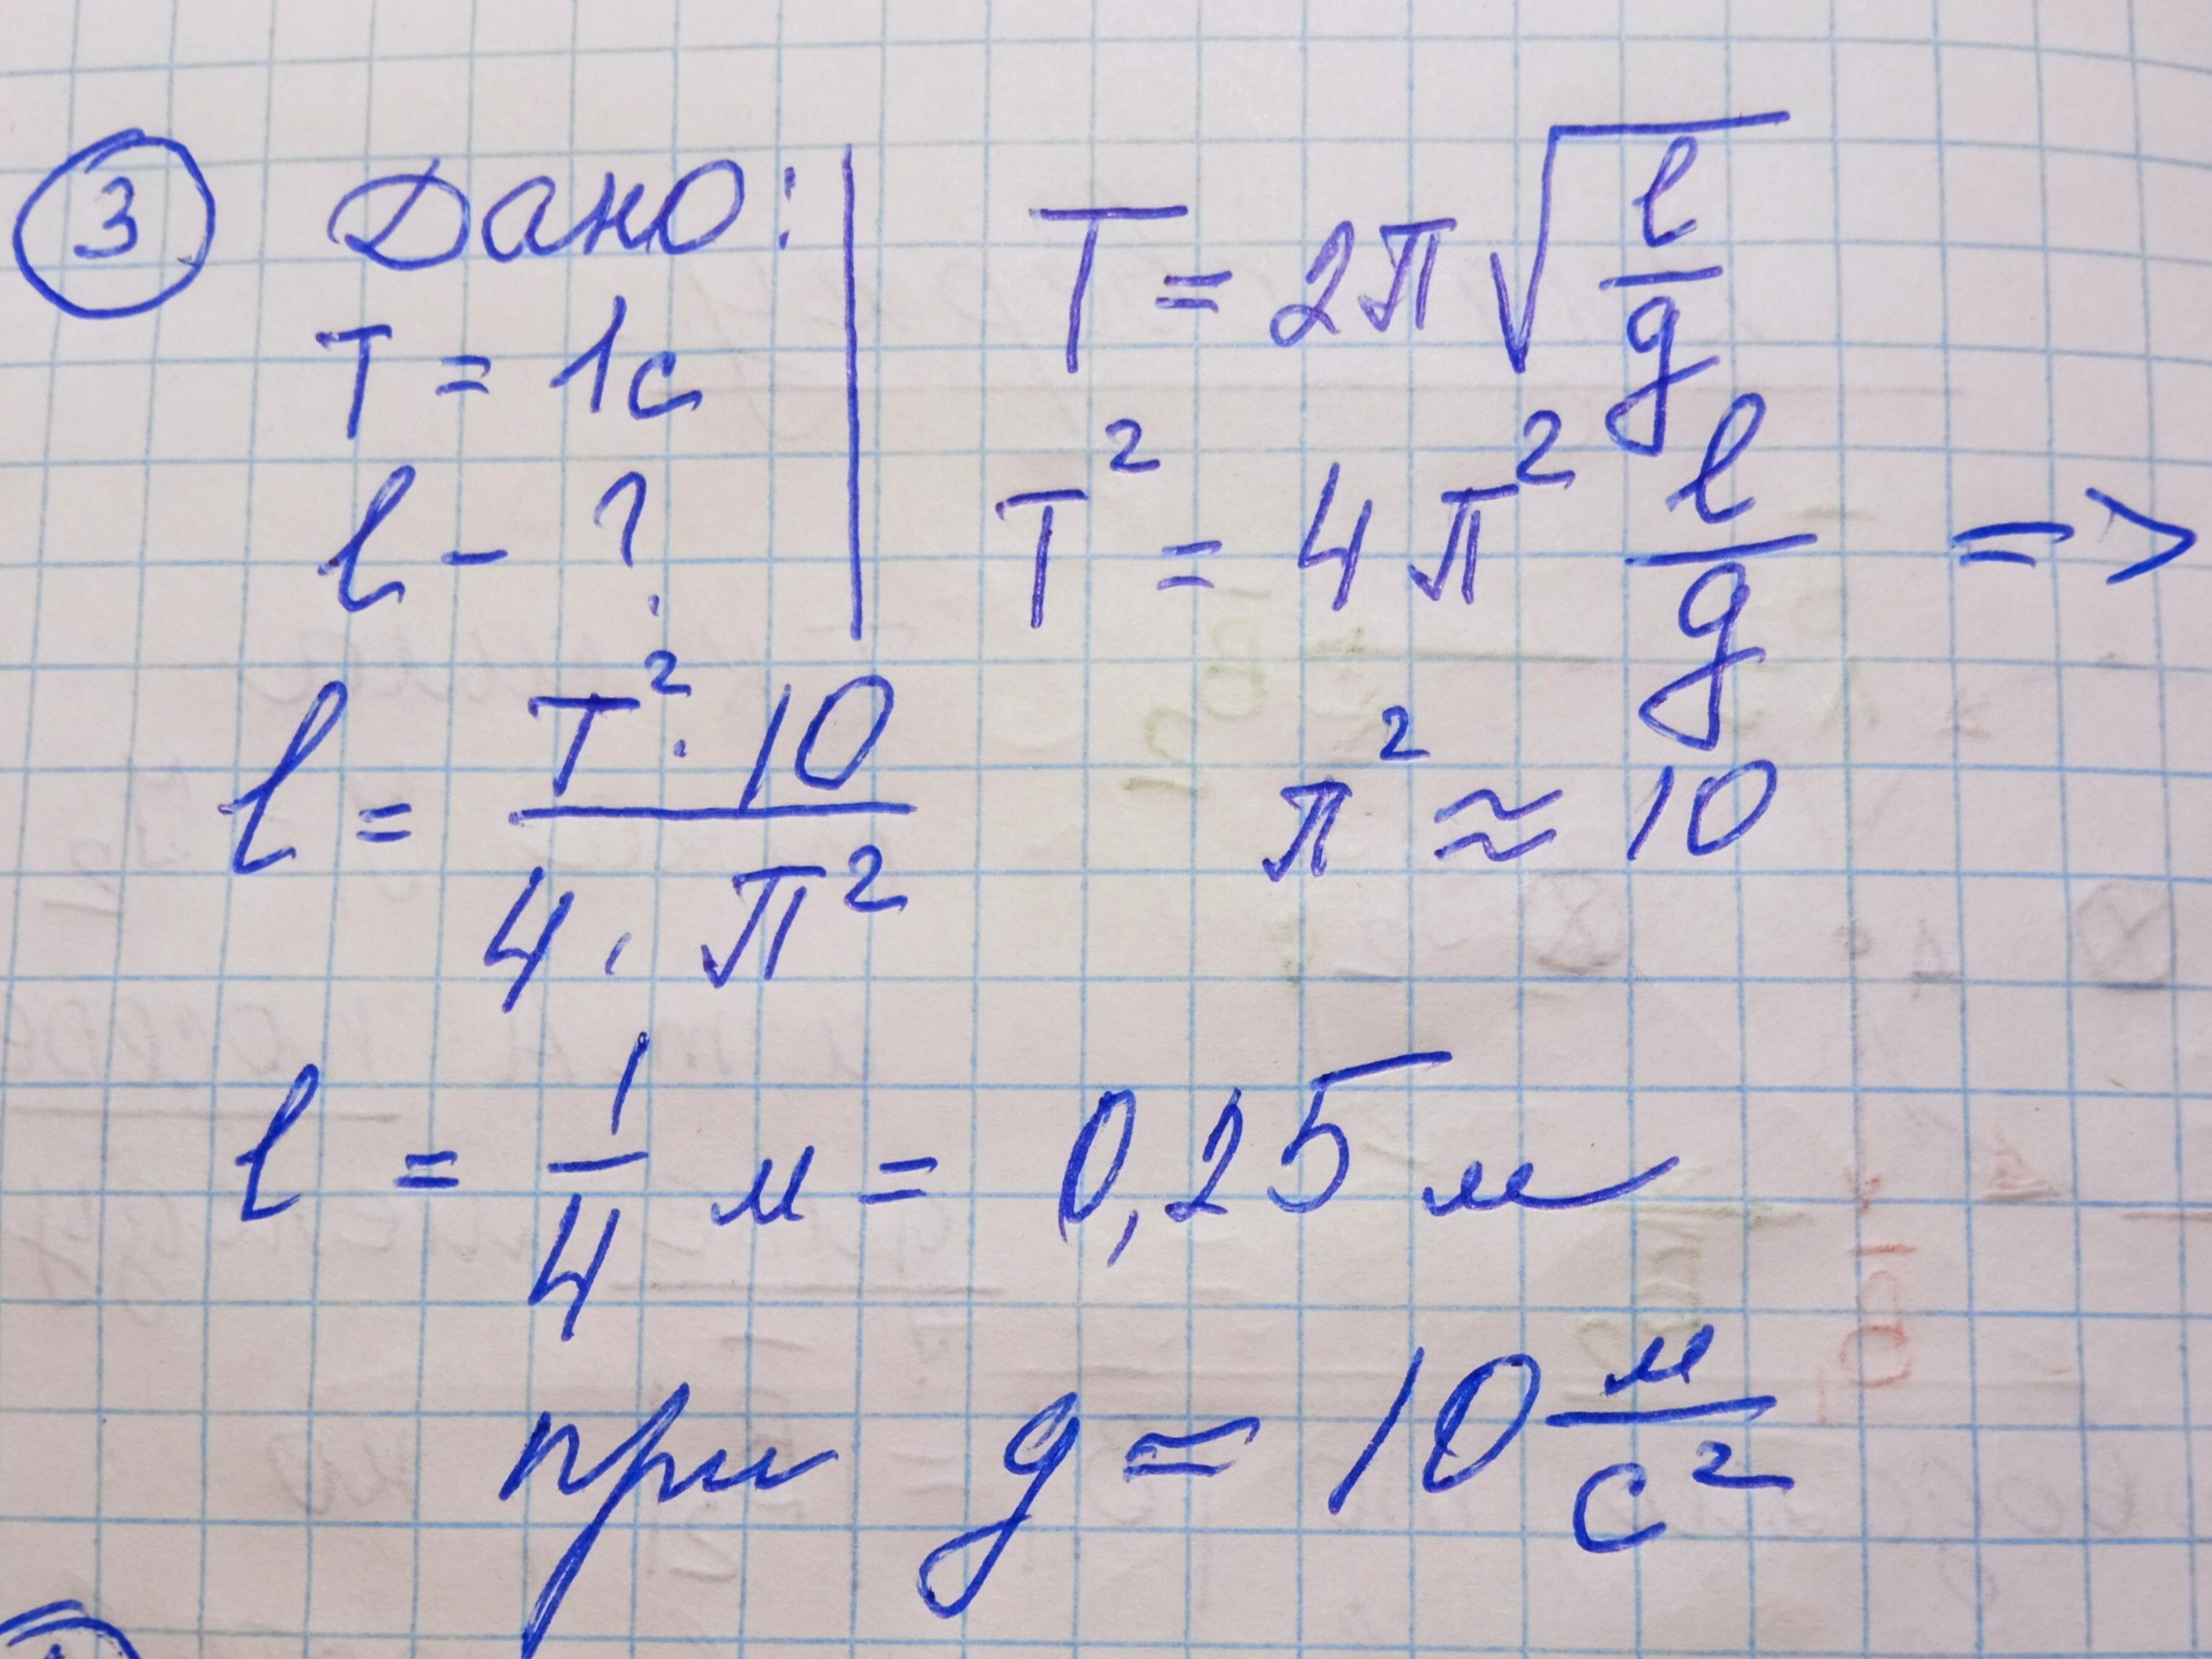 ③ Дано:
T = 1с
l - ?
T = 2π√(l/g)
T² = 4π² l/g =>
l = T² · 10 / 4 · π²
π² ≈ 10
l = 1/4 м = 0,25 м
при g ≈ 10 м/с²